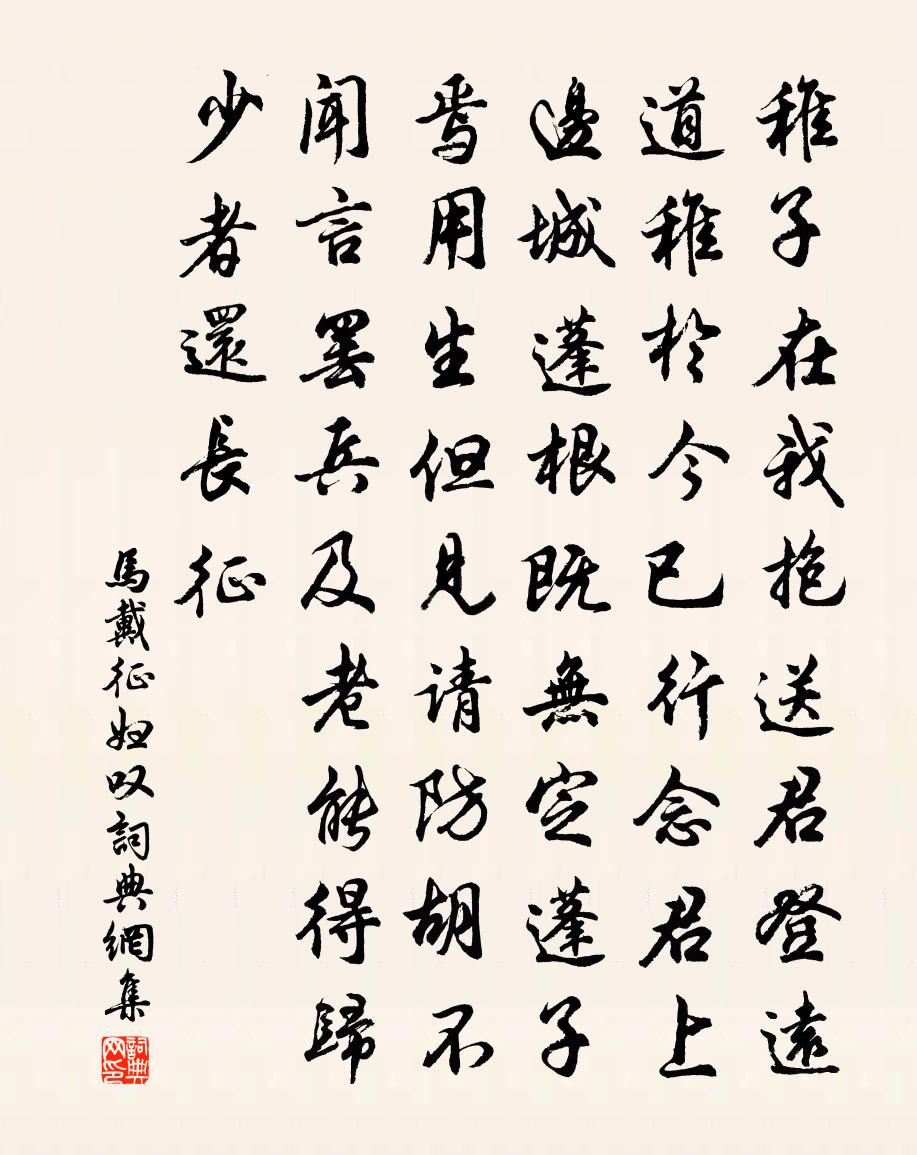 稚子在我抱送君登遠
道稚於今已行念君上
邊城蓬根既無定蓬子
焉用生但見请防胡不
聞言罷兵及老能得歸
少者還長征
馬戴征妇叹詞典網集
詞典网印